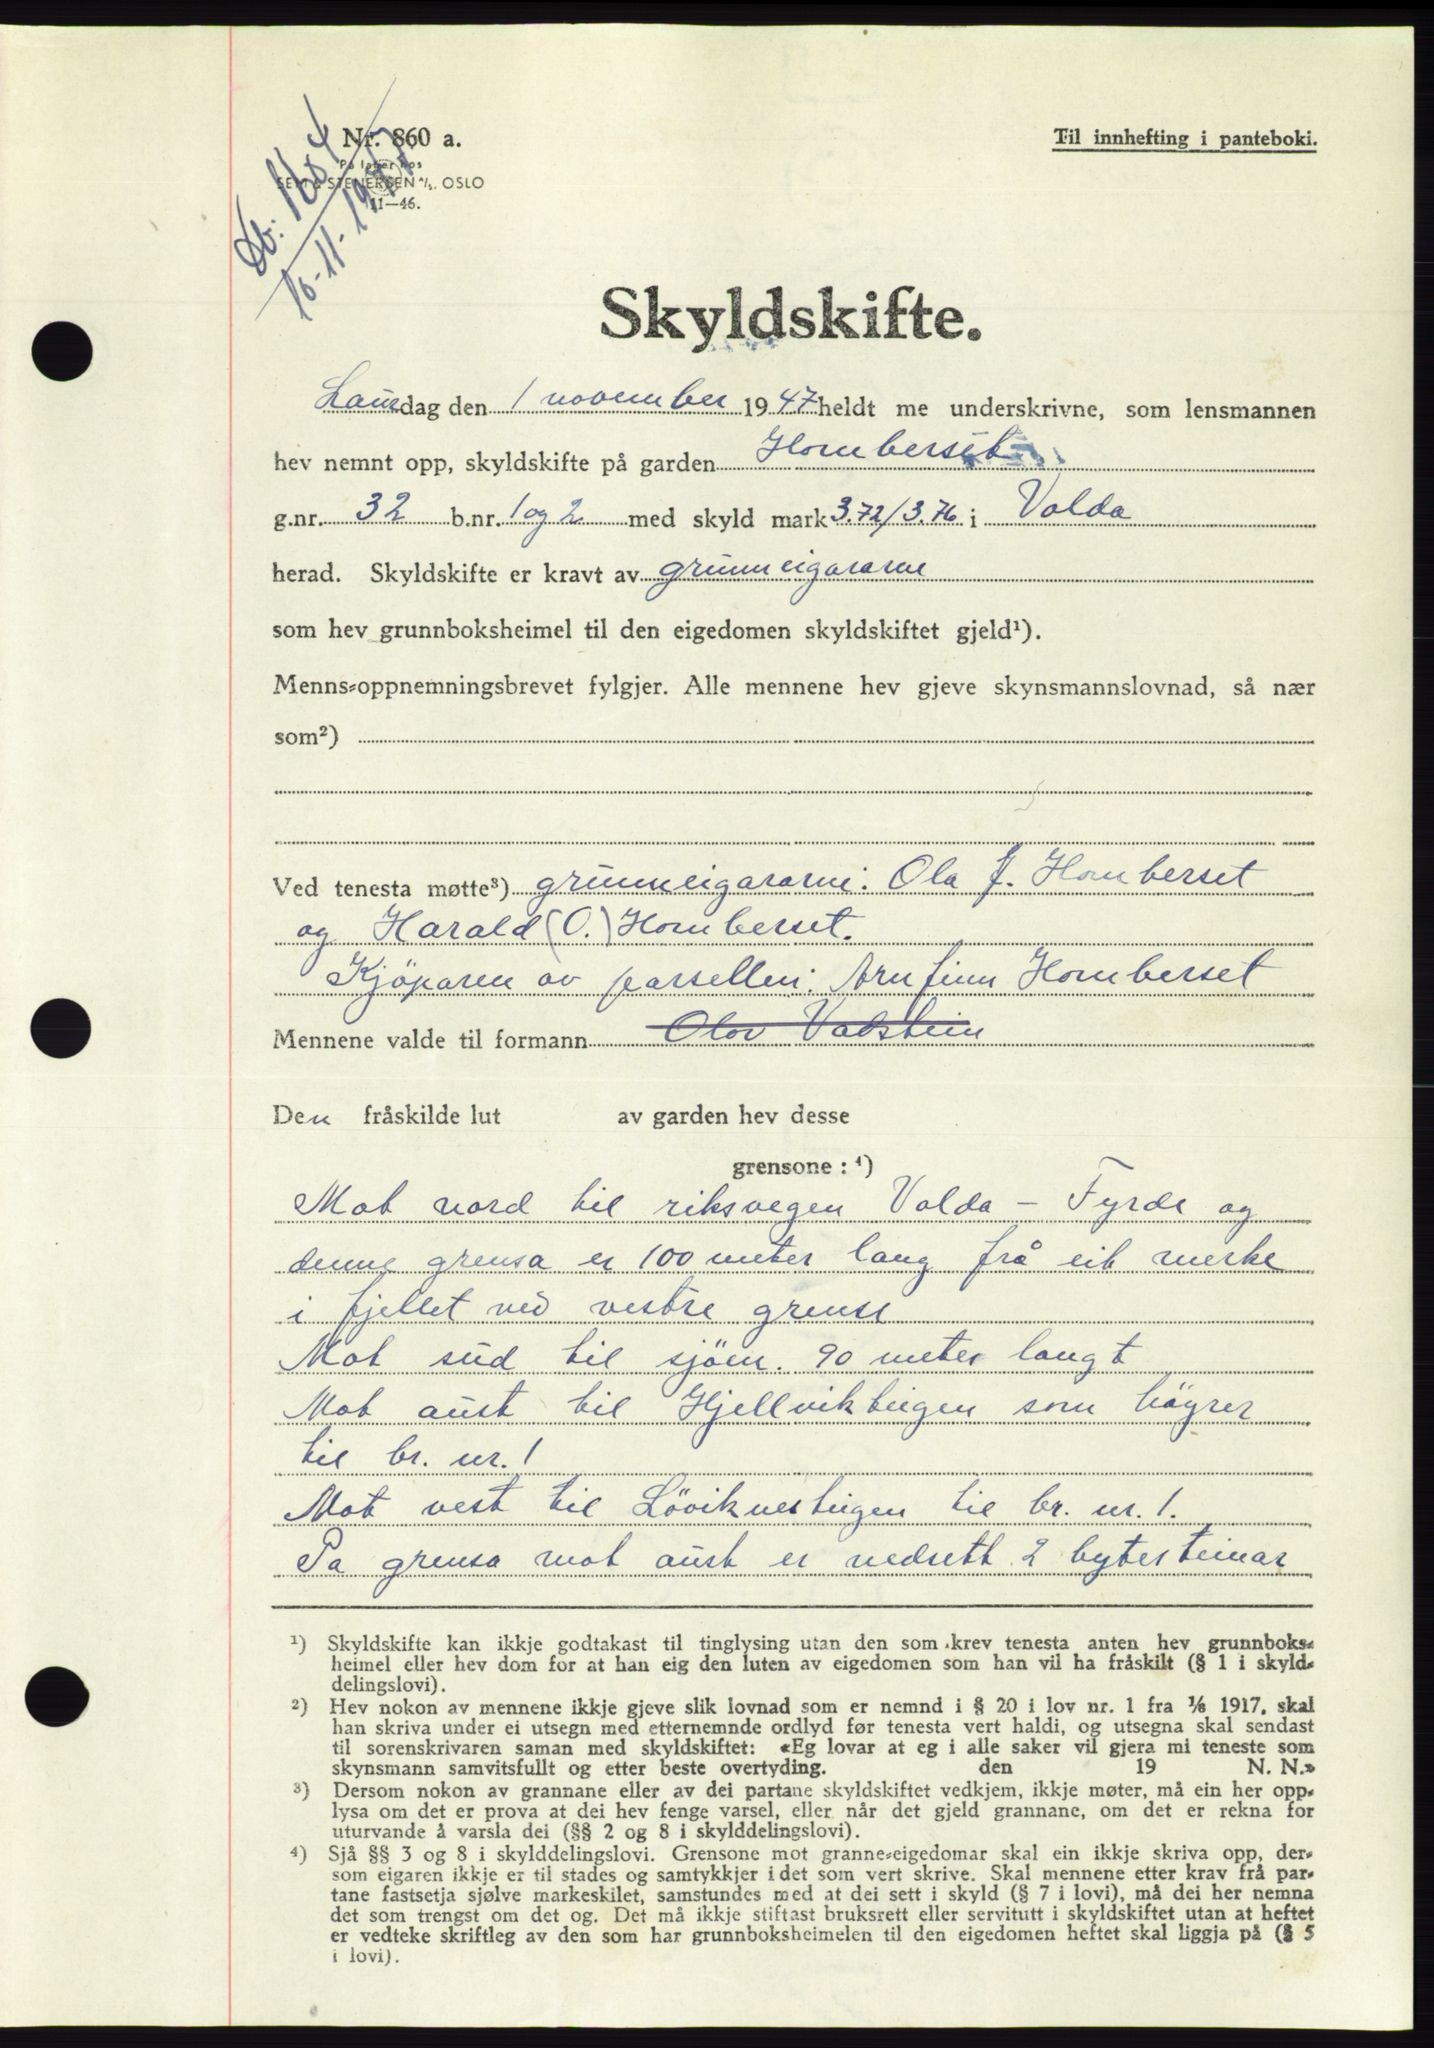 Db. 1684
10-11-1947
Nr. 860 a.
På lager hos
SEM & STENERSEN A/S, OSLO
11—46.
Til innhefting i panteboki.
Skyldskifte.
Laurdag den 1 november 1947 heldt me underskrivne, som lensmannen
hev nemnt opp, skyldskifte på garden Homberset
g.nr. 32 b.nr. 1 og 2 med skyld mark 3.72/3.76 i Volda
herad. Skyldskifte er kravt av grunneigararne
som hev grunnboksheimel til den eigedomen skyldskiftet gjeld¹).
Menns-oppnemningsbrevet fylgjer. Alle mennene hev gjeve skynsmannslovnad, så nær
som²)
Ved tenesta møtte³) grunneigararne: Ola J. Homberset
og Harald (O.) Homberset.
Kjöparen av parsellen: Arnfinn Homberset
Mennene valde til formann Olav Vatstein
Den fråskilde lut av garden hev desse
grensone: ⁴)
Mot nord til riksvegen Volda - Fyrde og
denne grensa er 100 meter lang frå eit merke
i fjellet ved vestre grense
Mot sud til sjöen. 90 meter langt
Mot aust til Hjellvikteigen som högrer
til br. nr. 1
Mot vest til Löviknesteigen til br. nr. 1.
Pa grensa mot aust er nedsett 2 bytesteinar
¹) Skyldskifte kan ikkje godtakast til tinglysing utan den som krev tenesta anten hev grunnboks-
heimel eller hev dom for at han eig den luten av eigedomen som han vil ha fråskilt (§ 1 i skyld-
delingslovi).
²) Hev nokon av mennene ikkje gjeve slik lovnad som er nemnd i § 20 i lov nr. 1 fra 1/8 1917, skal
han skriva under ei utsegn med etternemnde ordlyd før tenesta vert haldi, og utsegna skal sendast
til sorenskrivaren saman med skyldskiftet: «Eg lovar at eg i alle saker vil gjera mi teneste som
skynsmann samvitsfullt og etter beste overtyding. den 19 N. N.»
³) Dersom nokon av grannane eller av dei partane skyldskiftet vedkjem, ikkje møter, må ein her opp-
lysa om det er prova at dei hev fenge varsel, eller når det gjeld grannane, om det er rekna for
uturvande å varsla dei (§§ 2 og 8 i skylddelingslovi).
⁴) Sjå §§ 3 og 8 i skylddelingslovi. Grensone mot granne-eigedomar skal ein ikkje skriva opp, der-
som eigaren ikkje er til stades og samtykkjer i det som vert skrive. Skal mennene etter krav frå par-
tane fastsetja sjølve markeskilet, samstundes med at dei sett i skyld (§ 7 i lovi), må dei her nemna
det som trengst om det og. Det må ikkje stiftast bruksrett eller servitutt i skyldskiftet utan at heftet
er vedteke skriftleg av den som har grunnboksheimelen til den eigedomen heftet skal liggja på (§ 5
i lovi).